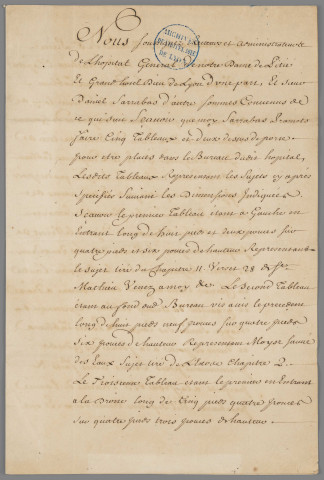 Nous
de L'hopital General de notre Dame de Pitié
et Grand hotel Dieu de Lyon d'une part, Et Sieur
Daniel Sarrabas d'autre sommes Convenus de
ce qui suit Scavoir que moy Sarrabas promets
faire Cinq Tableaux et deux dessus de porte
pour etre placés dans le Bureau dudit hopital,
Lesdits Tableaux Representans les Sujets cy après
Spécifiés Suivant les Dimensions Indiquées
Scavoir le premier Tableau etant a Gauche en
Entrant long de huit pieds et deux pouces sur
quatre pieds et six pouces de hauteur Representant
le sujet tiré du Chapitre 11. Verset 28 de St
Mathieu Venez a moy &c Le Second Tableau
etant au fond dud Bureau vis avis le precedent
long de huit pieds neuf pouces sur quatre pieds
six pouces de hauteur Representant Moyse sauvé
des Eaux Sujet tiré de L'Exode Chapitre 2.
Le Troisieme Tableau etant le premier en Entrant
a la Droite long de Cinq pieds quatre pouces
sur quatre pieds trois pouces de hauteur.
ARCHIVES
DE LYON